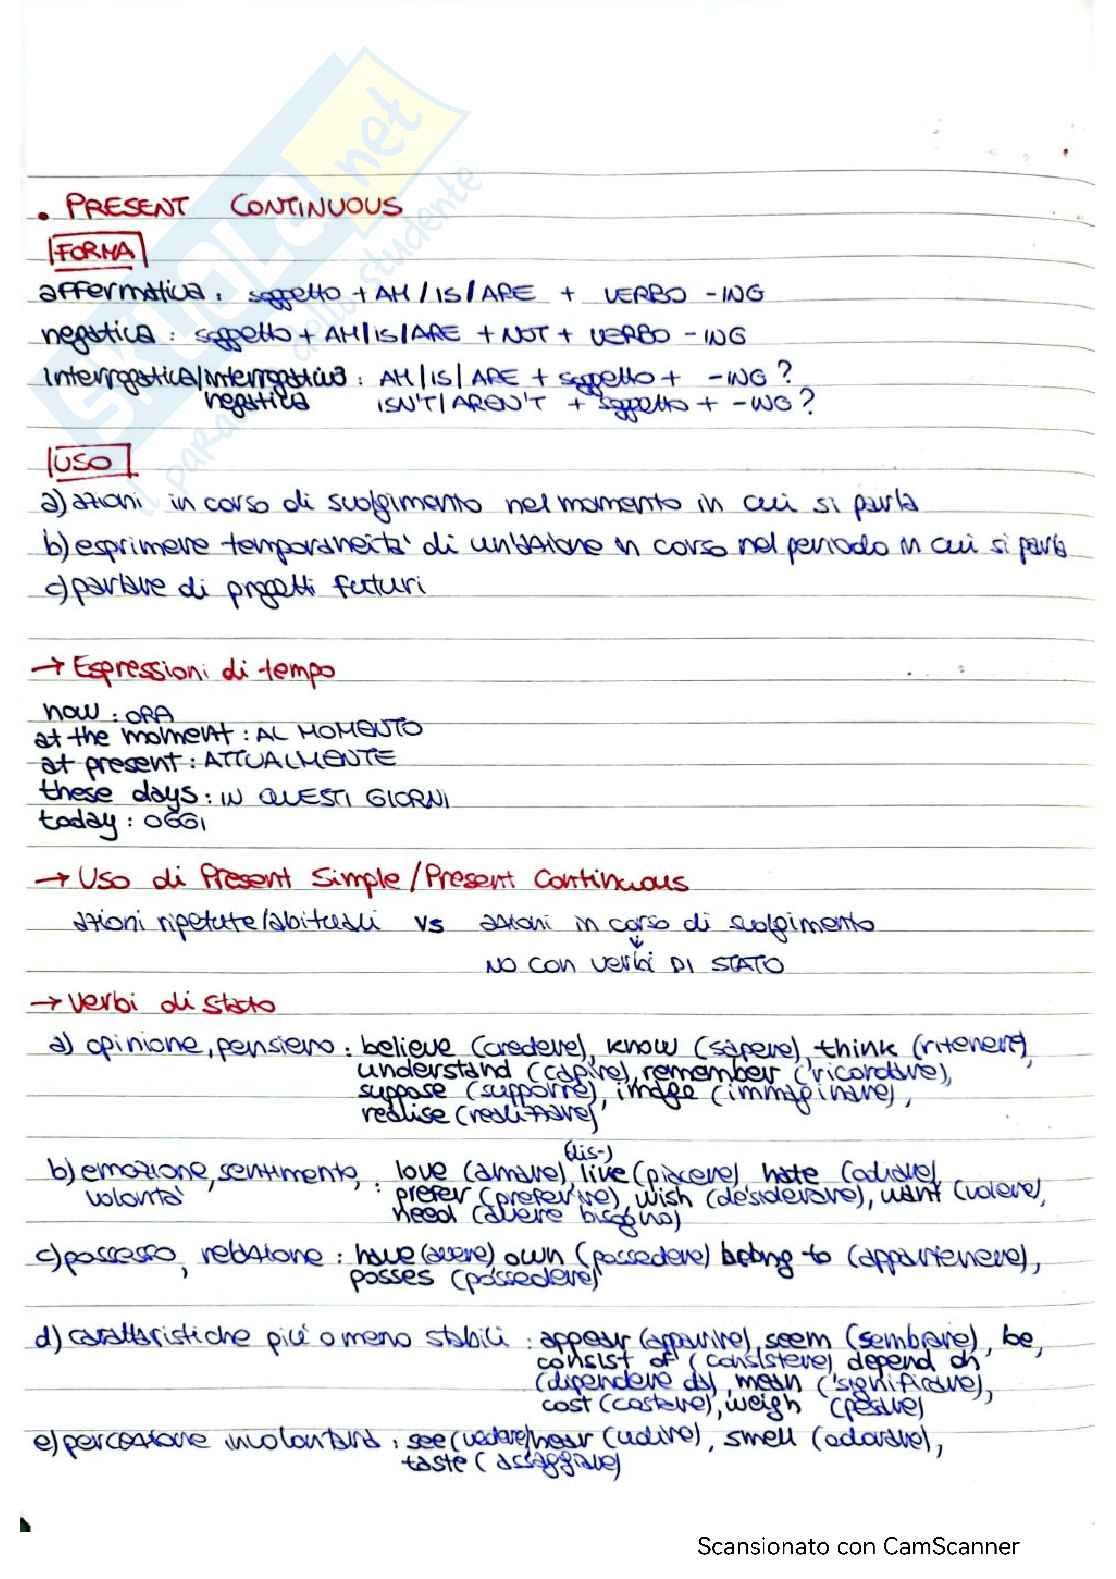 • PRESENT CONTINUOUS
FORMA
affermativa: soggetto + AM/IS/ARE + VERBO -ING
negativa: soggetto + AM/IS/ARE + NOT + VERBO -ING
interrogativa/interrogativa: AM/IS/ARE + soggetto + -ING?
negativa ISN'T/AREN'T + soggetto + -ING?
USO
a) azioni in corso di svolgimento nel momento in cui si parla
b) esprimere temporaneità di un'azione in corso nel periodo in cui si parla
c) parlare di progetti futuri
→ Espressioni di tempo
now: ORA
at the moment: AL MOMENTO
at present: ATTUALMENTE
these days: IN QUESTI GIORNI
today: OGGI
→ Uso di Present Simple/Present Continuous
azioni ripetute/abituali vs azioni in corso di svolgimento
↓
NO CON verbi DI STATO
→ Verbi di stato
a) opinione, pensiero: believe (credere), know (sapere), think (ritenere),
understand (capire), remember (ricordare),
suppose (supporre), image (immaginare),
realise (realizzare)
(dis-)
b) emozione, sentimento, : love (amare), like (piacere), hate (odiare)
volontà prefer (preferire), wish (desiderare), want (volere),
need (avere bisogno)
c) possesso, relazione: have (avere) own (possedere) belong to (appartenere),
posses (possedere)
d) caratteristiche più o meno stabili: appear (apparire), seem (sembrare), be,
consist of (consistere) depend on
(dipendere da), mean (significare),
cost (costare), weigh (pesare)
e) percezione involontaria: see (vedere) hear (udire), smell (odorare),
taste (assaggiare)
Scansionato con CamScanner
SKUOLA.net
il paradiso dello studente